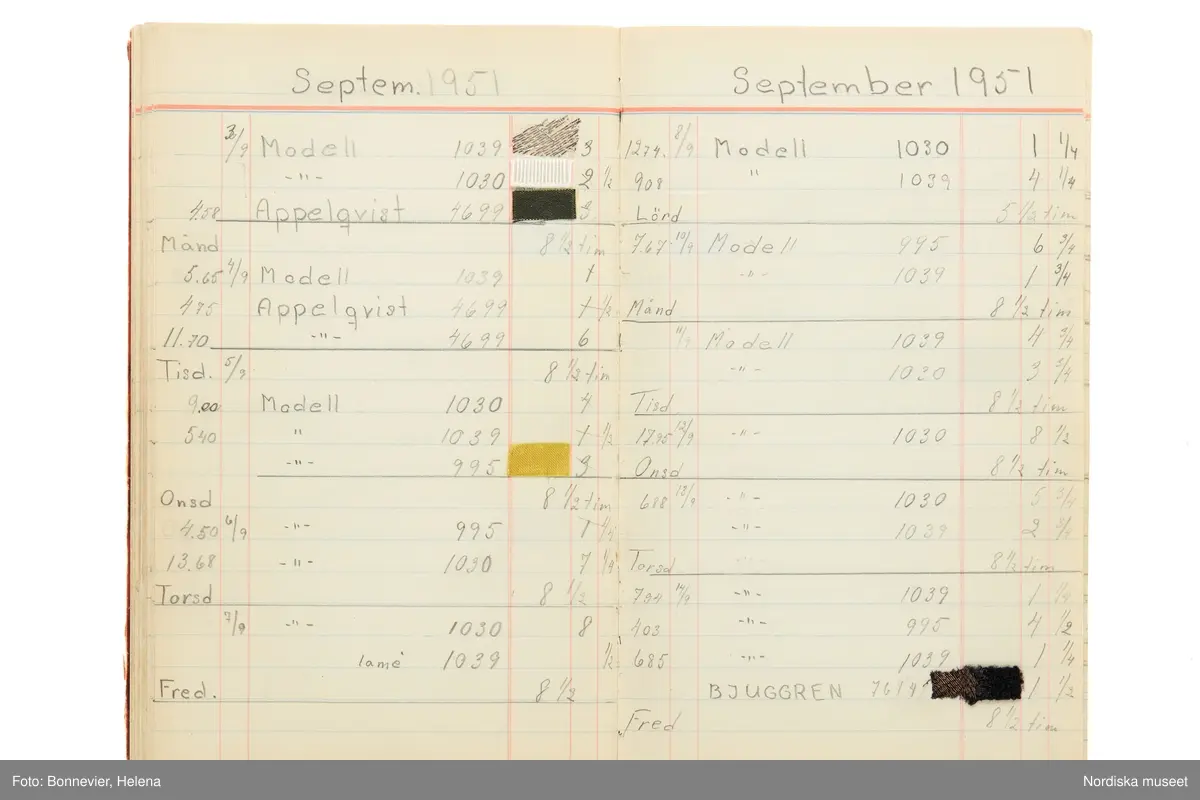 Septem. 1951
3/9 Modell 1039 3
-"- 1030 2 1/2
458 Appelqvist 4699 3
Månd 8 1/2 tim
5.65 4/9 Modell 1039 1
475 Appelqvist 4699 1 1/2
11.70 -"- 4699 6
Tisd. 5/9 8 1/2 tim
9.00 Modell 1030 4
540 " 1039 1 1/2
-"- 995 3
Onsd 8 1/2 tim
4.50 6/9 -"- 995 1 1/4
13.68 -"- 1030 7 1/4
Torsd 8 1/2
7/9 -"- 1030 8
lamé 1039 1/2
Fred. 8 1/2
September 1951
1274. 8/9 Modell 1030 1 1/4
908 " 1039 4 1/4
Lörd 5 1/2 tim
767 10/9 Modell 995 6 3/4
-"- 1039 1 3/4
Månd 8 1/2 tim
11/9 Modell 1039 4 3/4
-"- 1030 3 3/4
Tisd 8 1/2 tim
1795 12/9 -"- 1030 8 1/2
Onsd 8 1/2 tim
688 13/9 -"- 1030 5 3/4
-"- 1039 2 3/4
Torsd 8 1/2 tim
794 14/9 -"- 1039 1 1/4
403 -"- 995 4 1/2
685 -"- 1039 1 1/4
BJUGGREN 1 1/2
Fred 8 1/2 tim
Foto: Bonnevier, Helena
Nordiska museet